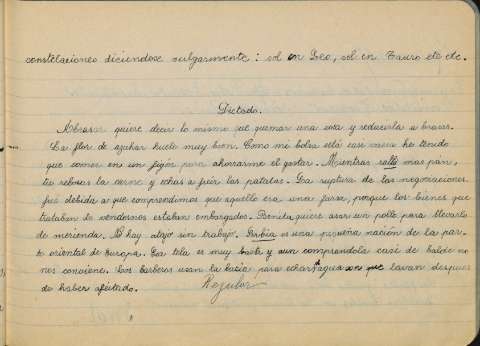 constelaciones diciéndose vulgarmente: sol en Leo, sol en Tauro etc etc.
Dictado.
Abrasar quiere decir lo mismo que quemar una cosa y reducirla a brasas.
La flor de azahar huele muy bien. Como mi bolsa está casi vacia he tenido
que comer en un figón para ahorrarme el gastar. Mientras rallo mas pán,
tu rebozas la carne y echas a freir las patatas. La ruptura de las negociaciones
fué debida a que comprendimos que aquello era una farsa, porque los bienes que
trataban de vendernos estaban embargados. Benita quiere asar un pollo para llevarlo
de merienda. No hay atajo sin trabajo. Serbia es una pequeña nación de la par-
te oriental de Europa. La tela es muy basta y aun comprandola casi de balde no
nos conviene. Los barberos usan la bacia para echar agua en que lavan despues
de haber afeitado.
Regular